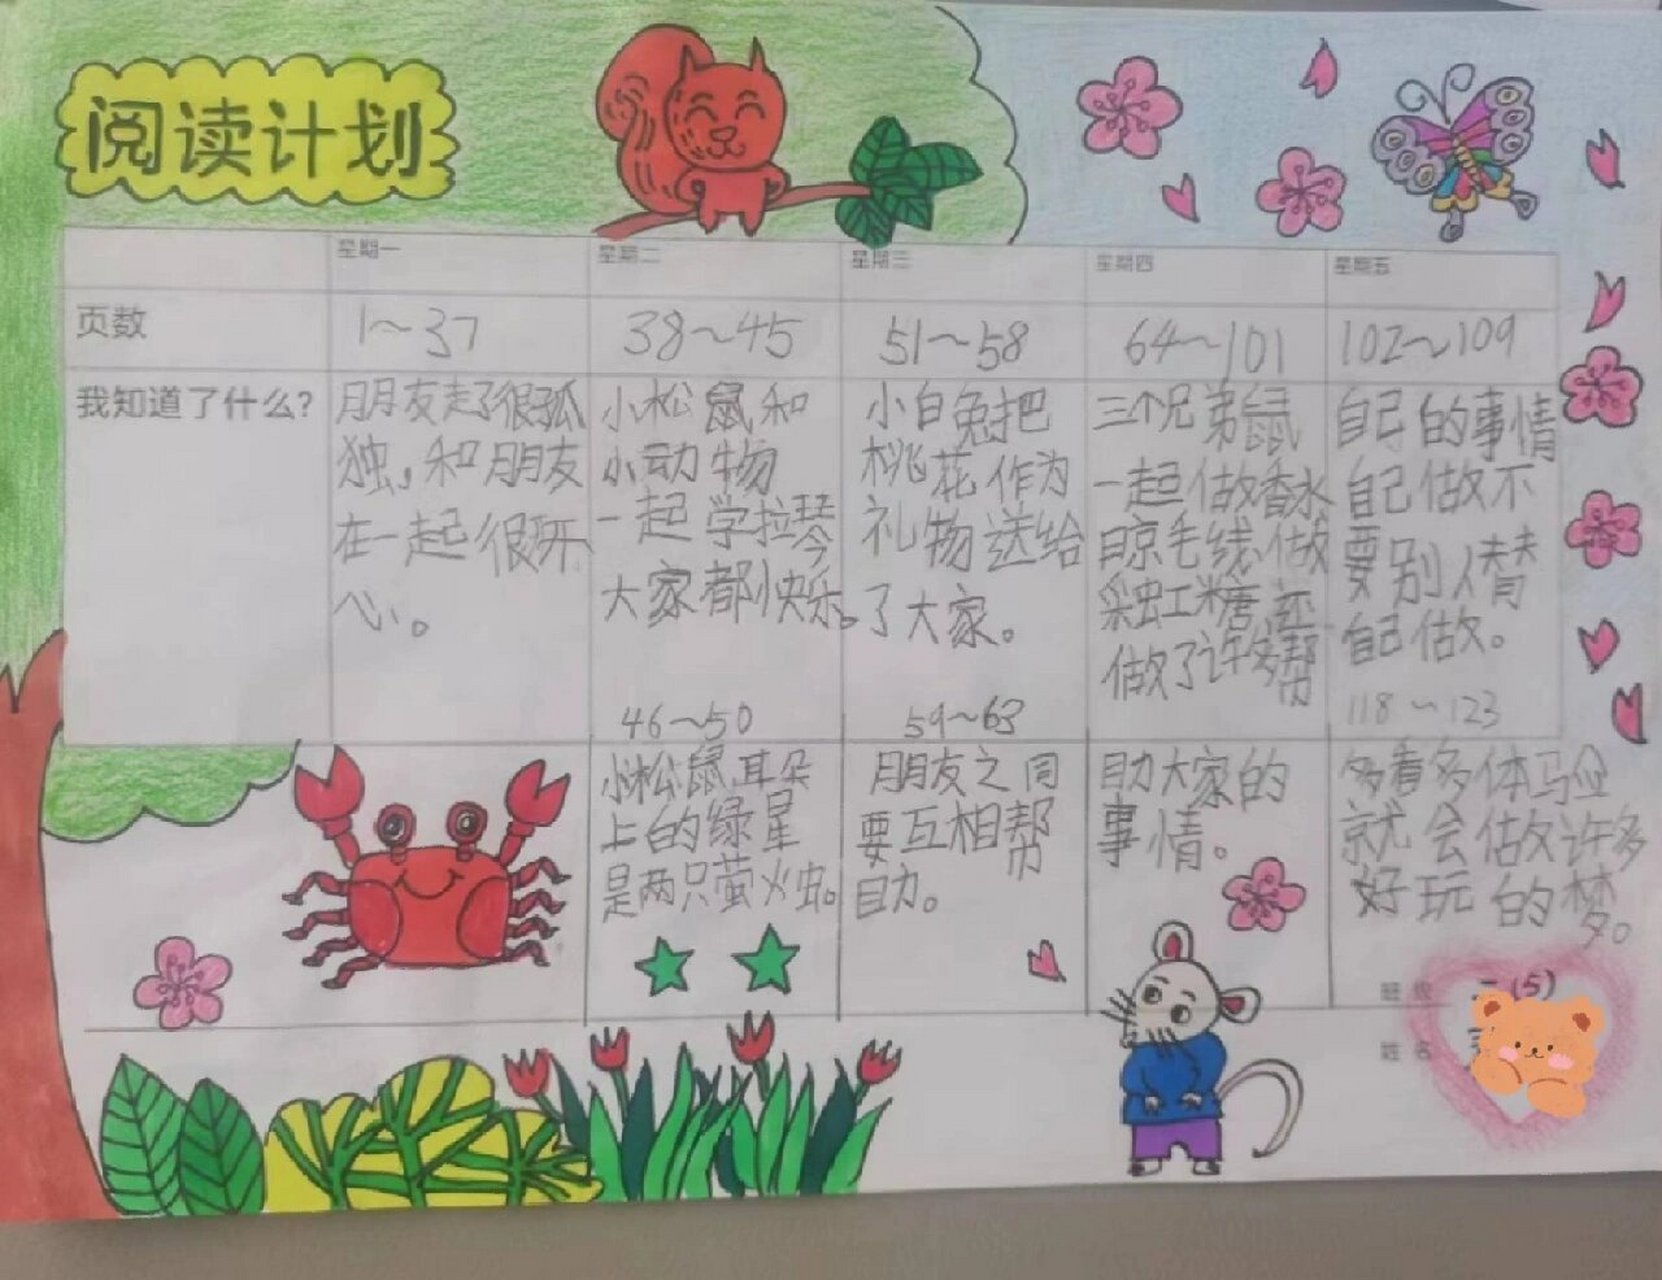 阅读计划
星期一
星期二
星期三
星期四
星期五
页数
1～37
38～45
51～58
64～101
102～109
我知道了什么?
朋友走了很孤
独,和朋友
在一起很开
心。
小松鼠和
小动物
一起学拉琴
大家都快乐。
46～50
小松鼠耳朵
上的绿星
是两只萤火虫。
小白兔把
桃花作为
礼物送给
了大家。
59～63
朋友之间
要互相帮
助。
三个兄弟鼠
一起做香水
晾毛线,做
彩虹糖,还
做了许多帮
助大家的
事情。
自己的事情
自己做不
要别人替
自己做。
118～123
多看多体验
就会做许多
好玩的梦。
班
(5)
姓名